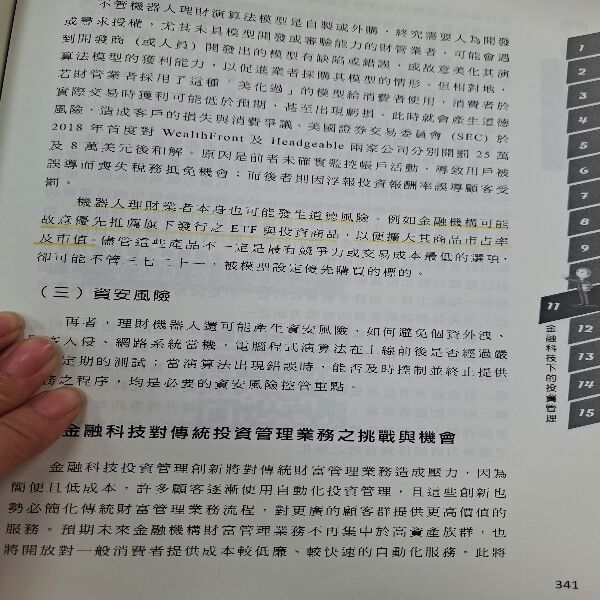 不管機器人理財演算法模型是自製或外購，終究需要人為開發
或尋求授權，尤其未具模型開發或審驗能力的財管業者，可能會遇
到開發商（或人員）開發出的模型有缺陷或錯誤，或故意美化其演
算法模型的獲利能力，以促進業者採購其模型的情形。但相對地，
若財管業者採用了這種「美化過」的模型給消費者使用，消費者於
實際交易時獲利可能低於預期，甚至出現虧損。此時就會產生道德
風險，造成客戶的損失與消費爭議。美國證券交易委員會 (SEC) 於
2018 年首度對 WealthFront 及 Headgeable 兩家公司分別開罰 25 萬
及 8 萬美元後和解。原因是前者未確實監控帳戶活動，導致用戶被
誤導而喪失稅務抵免機會；而後者則因浮報投資報酬率誤導顧客受
罰。
機器人理財業者本身也可能發生道德風險。例如金融機構可能
故意優先推薦旗下發行之 ETF 與投資商品，以便擴大其商品市占率
及市值。儘管這些產品不一定是最有競爭力或交易成本最低的選項，
卻可能不管三七二十一，被模型設定優先購買的標的。
（三）資安風險
再者，理財機器人還可能產生資安風險，如何避免個資外洩、
客入侵、網路系統當機，電腦程式演算法在上線前後是否經過嚴
定期的測試；當演算法出現錯誤時，能否及時控制並終止提供
務之程序，均是必要的資安風險控管重點。
金融科技對傳統投資管理業務之挑戰與機會
金融科技投資管理創新將對傳統財富管理業務造成壓力，因為
簡便且低成本，許多顧客逐漸使用自動化投資管理，且這些創新也
勢必簡化傳統財富管理業務流程，對更廣的顧客群提供更高價值的
服務。預期未來金融機構財富管理業務不再集中於高資產族群，也
將開放對一般消費者提供成本較低廉、較快速的自動化服務。此將
1
2
3
4
5
6
7
8
9
11
金融科技下的投資管理
12
13
14
15
341